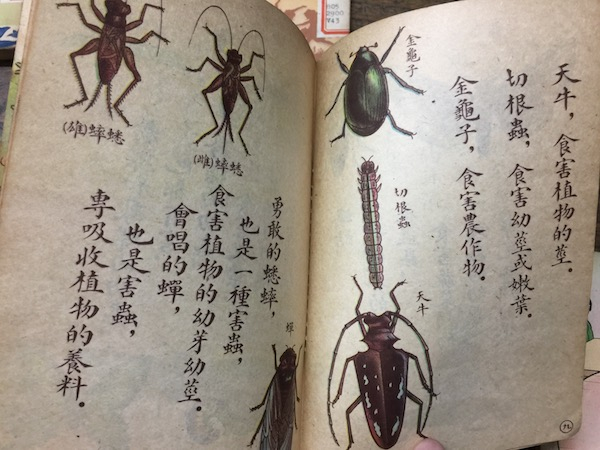 天牛，食害植物的莖。
切根蟲，食害幼莖或嫩葉。
金龜子，食害農作物。
金龜子
切根蟲
天牛
勇敢的蟋蟀，
也是一種害蟲，
食害植物的幼芽幼莖。
會唱的蟬，
也是害蟲，
專吸收植物的養料。
蟋蟀(雌)
蟋蟀(雄)
蟬